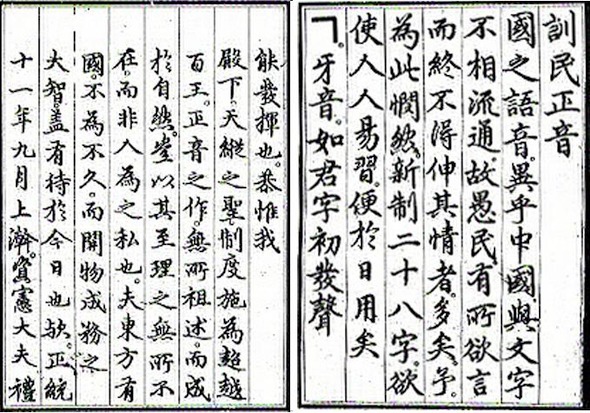 訓民正音
國之語音。異乎中國。與文字
不相流通。故愚民有所欲言
而終不得伸其情者。多矣。予。
為此憫然。新制二十八字。欲
使人人易習。便於日用矣
ㄱ。牙音。如君字初發聲
能發揮也。恭惟我
殿下。天縱之聖。制度施為超越
百王。正音之作。無所祖述。而成
於自然。豈以其至理之無所不
在。而非人為之私也。夫東方有
國。不為不久。而開物成務之
大智。盖有待於今日也欤。正統
十一年九月上澣。資憲大夫禮